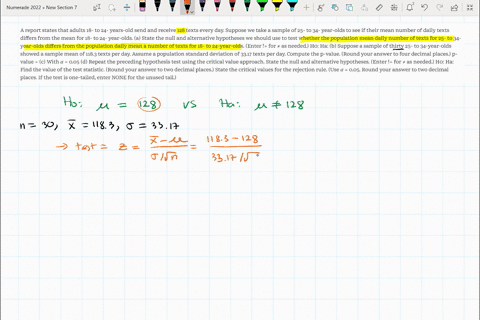 Numerade 2022 » New Section 7
A report states that adults 18- to 24- years-old send and receive 128 texts every day. Suppose we take a sample of 25- to 34- year-olds to see if their mean number of daily texts
differs from the mean for 18- to 24- year-olds. (a) State the null and alternative hypotheses we should use to test whether the population mean daily number of texts for 25- to 34-
year-olds differs from the population daily mean number of texts for 18- to 24-year-olds. (Enter != for ≠ as needed.) H0: Ha: (b) Suppose a sample of thirty 25- to 34-year-olds
showed a sample mean of 118.3 texts per day. Assume a population standard deviation of 33.17 texts per day. Compute the p-value. (Round your answer to four decimal places.) p-
value = (c) With α = 0.05 (d) Repeat the preceding hypothesis test using the critical value approach. State the null and alternative hypotheses. (Enter != for ≠ as needed.) H0: Ha:
Find the value of the test statistic. (Round your answer to two decimal places.) State the critical values for the rejection rule. (Use α = 0.05. Round your answer to two decimal
places. If the test is one-tailed, enter NONE for the unused tail.)
Ho: μ = 128 vs Ha: μ ≠ 128
n = 30, x̄ = 118.3, σ = 33.17
→ test = z = x̄ - μ / σ/√n = 118.3 - 128 / 33.17/√